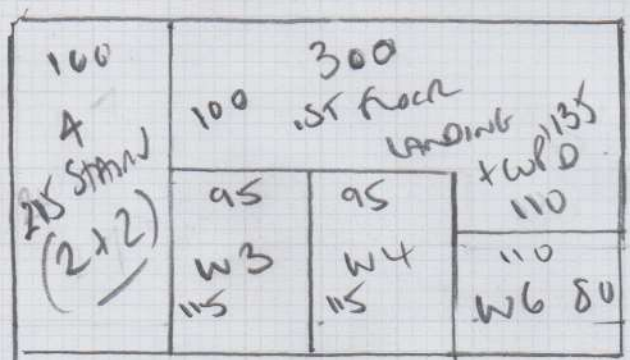 100
4
215 STAIRS
(2x2)
300
100 1ST FLOOR
LANDING 135
+ CUPD
110
95
W3
115
95
W4
115
110
W6 80